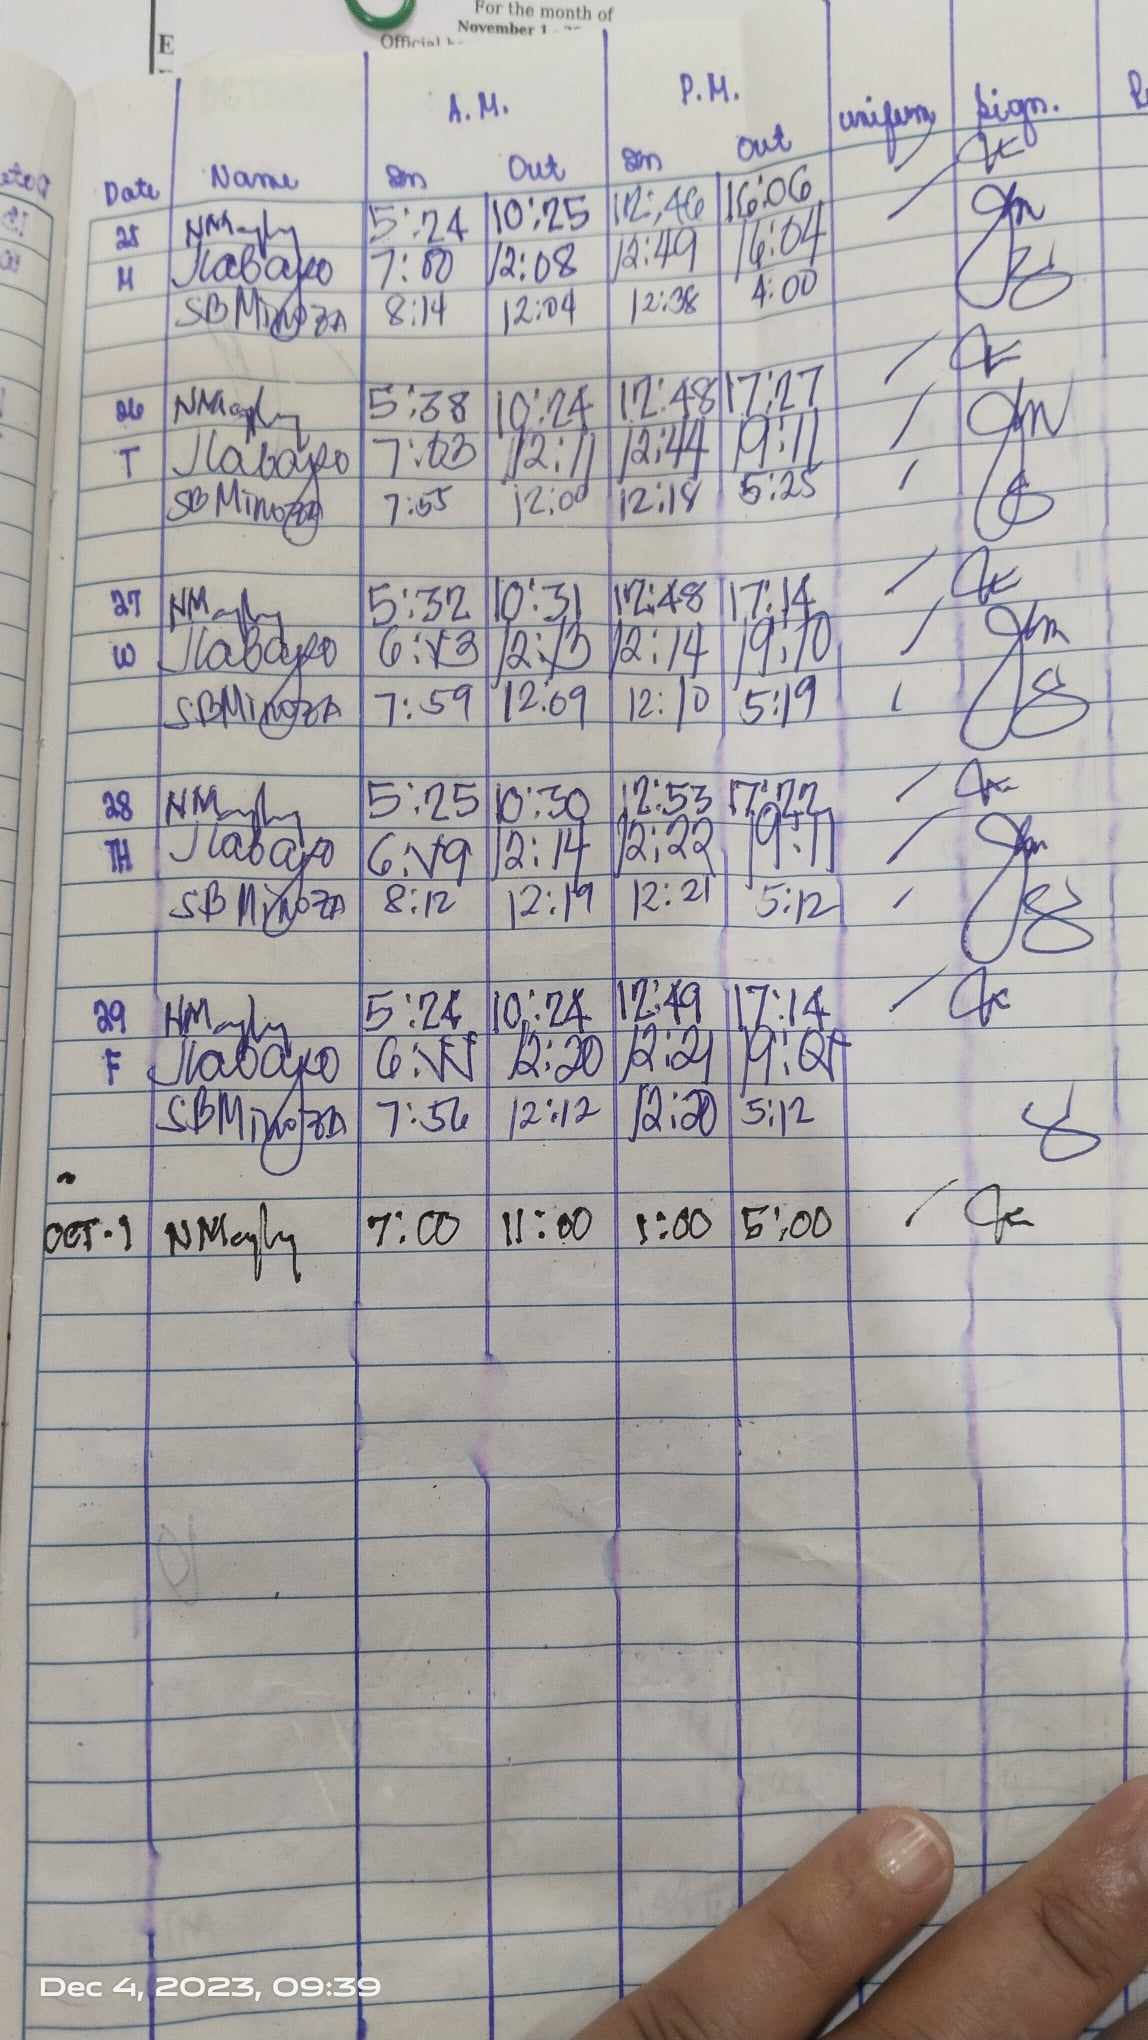 For the month of
November 1
E
A.M. P.M.
Date Name In Out In Out uniform Sign.
25 5:24 10:25 12:46 16:06
M JLabayo 7:00 12:08 12:49 16:04
SBMinoza 8:14 12:04 12:38 4:00
26 5:38 10:24 12:48 17:27
T JLabayo 7:03 12:11 12:44 19:11
SBMinoza 7:55 12:00 12:18 5:25
27 5:32 10:31 12:48 17:14
W JLabayo 12:13 12:14 19:10
SBMinoza 7:59 12:09 12:10 5:19
28 5:25 10:30 12:53 17:22
TH JLabayo 12:14 12:22 19:11
SBMinoza 8:12 12:19 12:21 5:12
29 5:24 10:24 12:49 17:14
F JLabayo 12:20 12:21
SBMinoza 7:56 12:12 12:20 5:12
OCT-1 7:00 11:00 1:00 5:00
Dec 4, 2023, 09:39